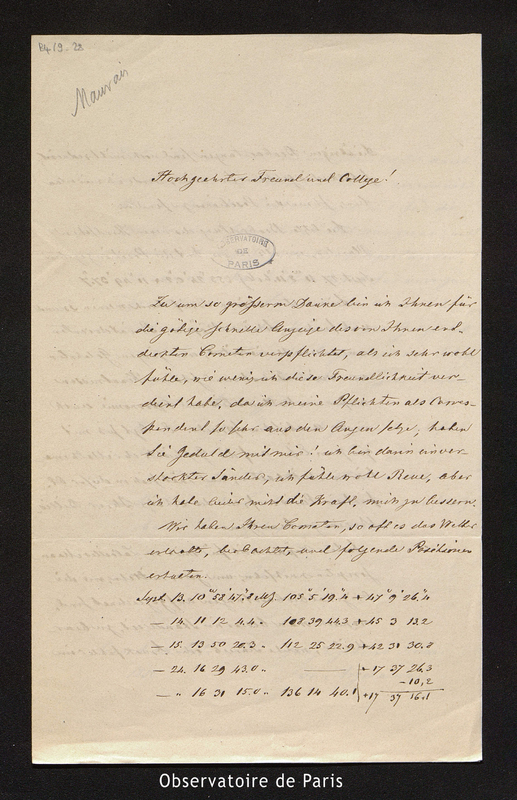 B4/9-22
Mauvais
Hochgeehrter Freund und College!
OBSERVATOIRE
DE
PARIS
Zu um so größerm Danke bin ich Ihnen für
die gütige schnelle Anzeige des von Ihnen ent-
deckten Cometen verpflichtet, als ich sehr wohl
fühle, wie wenig ich diese Freundlichkeit ver-
dient habe, da ich meine Pflichten als Corres-
pondent so sehr aus den Augen setze, haben
Sie Geduld mit mir! ich bin darin ein ver-
stockter Sünder, ich fühle wohl Reue, aber
ich habe leider nicht die Kraft, mich zu bessern.
Wir haben Ihren Cometen, so oft es das Wetter
erlaubte, beobachtet, und folgende Positionen
erhalten.
Sept. 13. 10 58 47.8 105 5 19.4 + 47 9 26.4
— 14. 11 12 4.4 108 39 44.3 + 45 3 13.2
— 15. 13 50 20.3 112 25 22.9 + 42 31 30.8
— 24. 16 29 43.0 — +17 37 26.3
-10,2
— " 16 31 15.0 136 14 40.1 +17 37 16.1
Observatoire de Paris